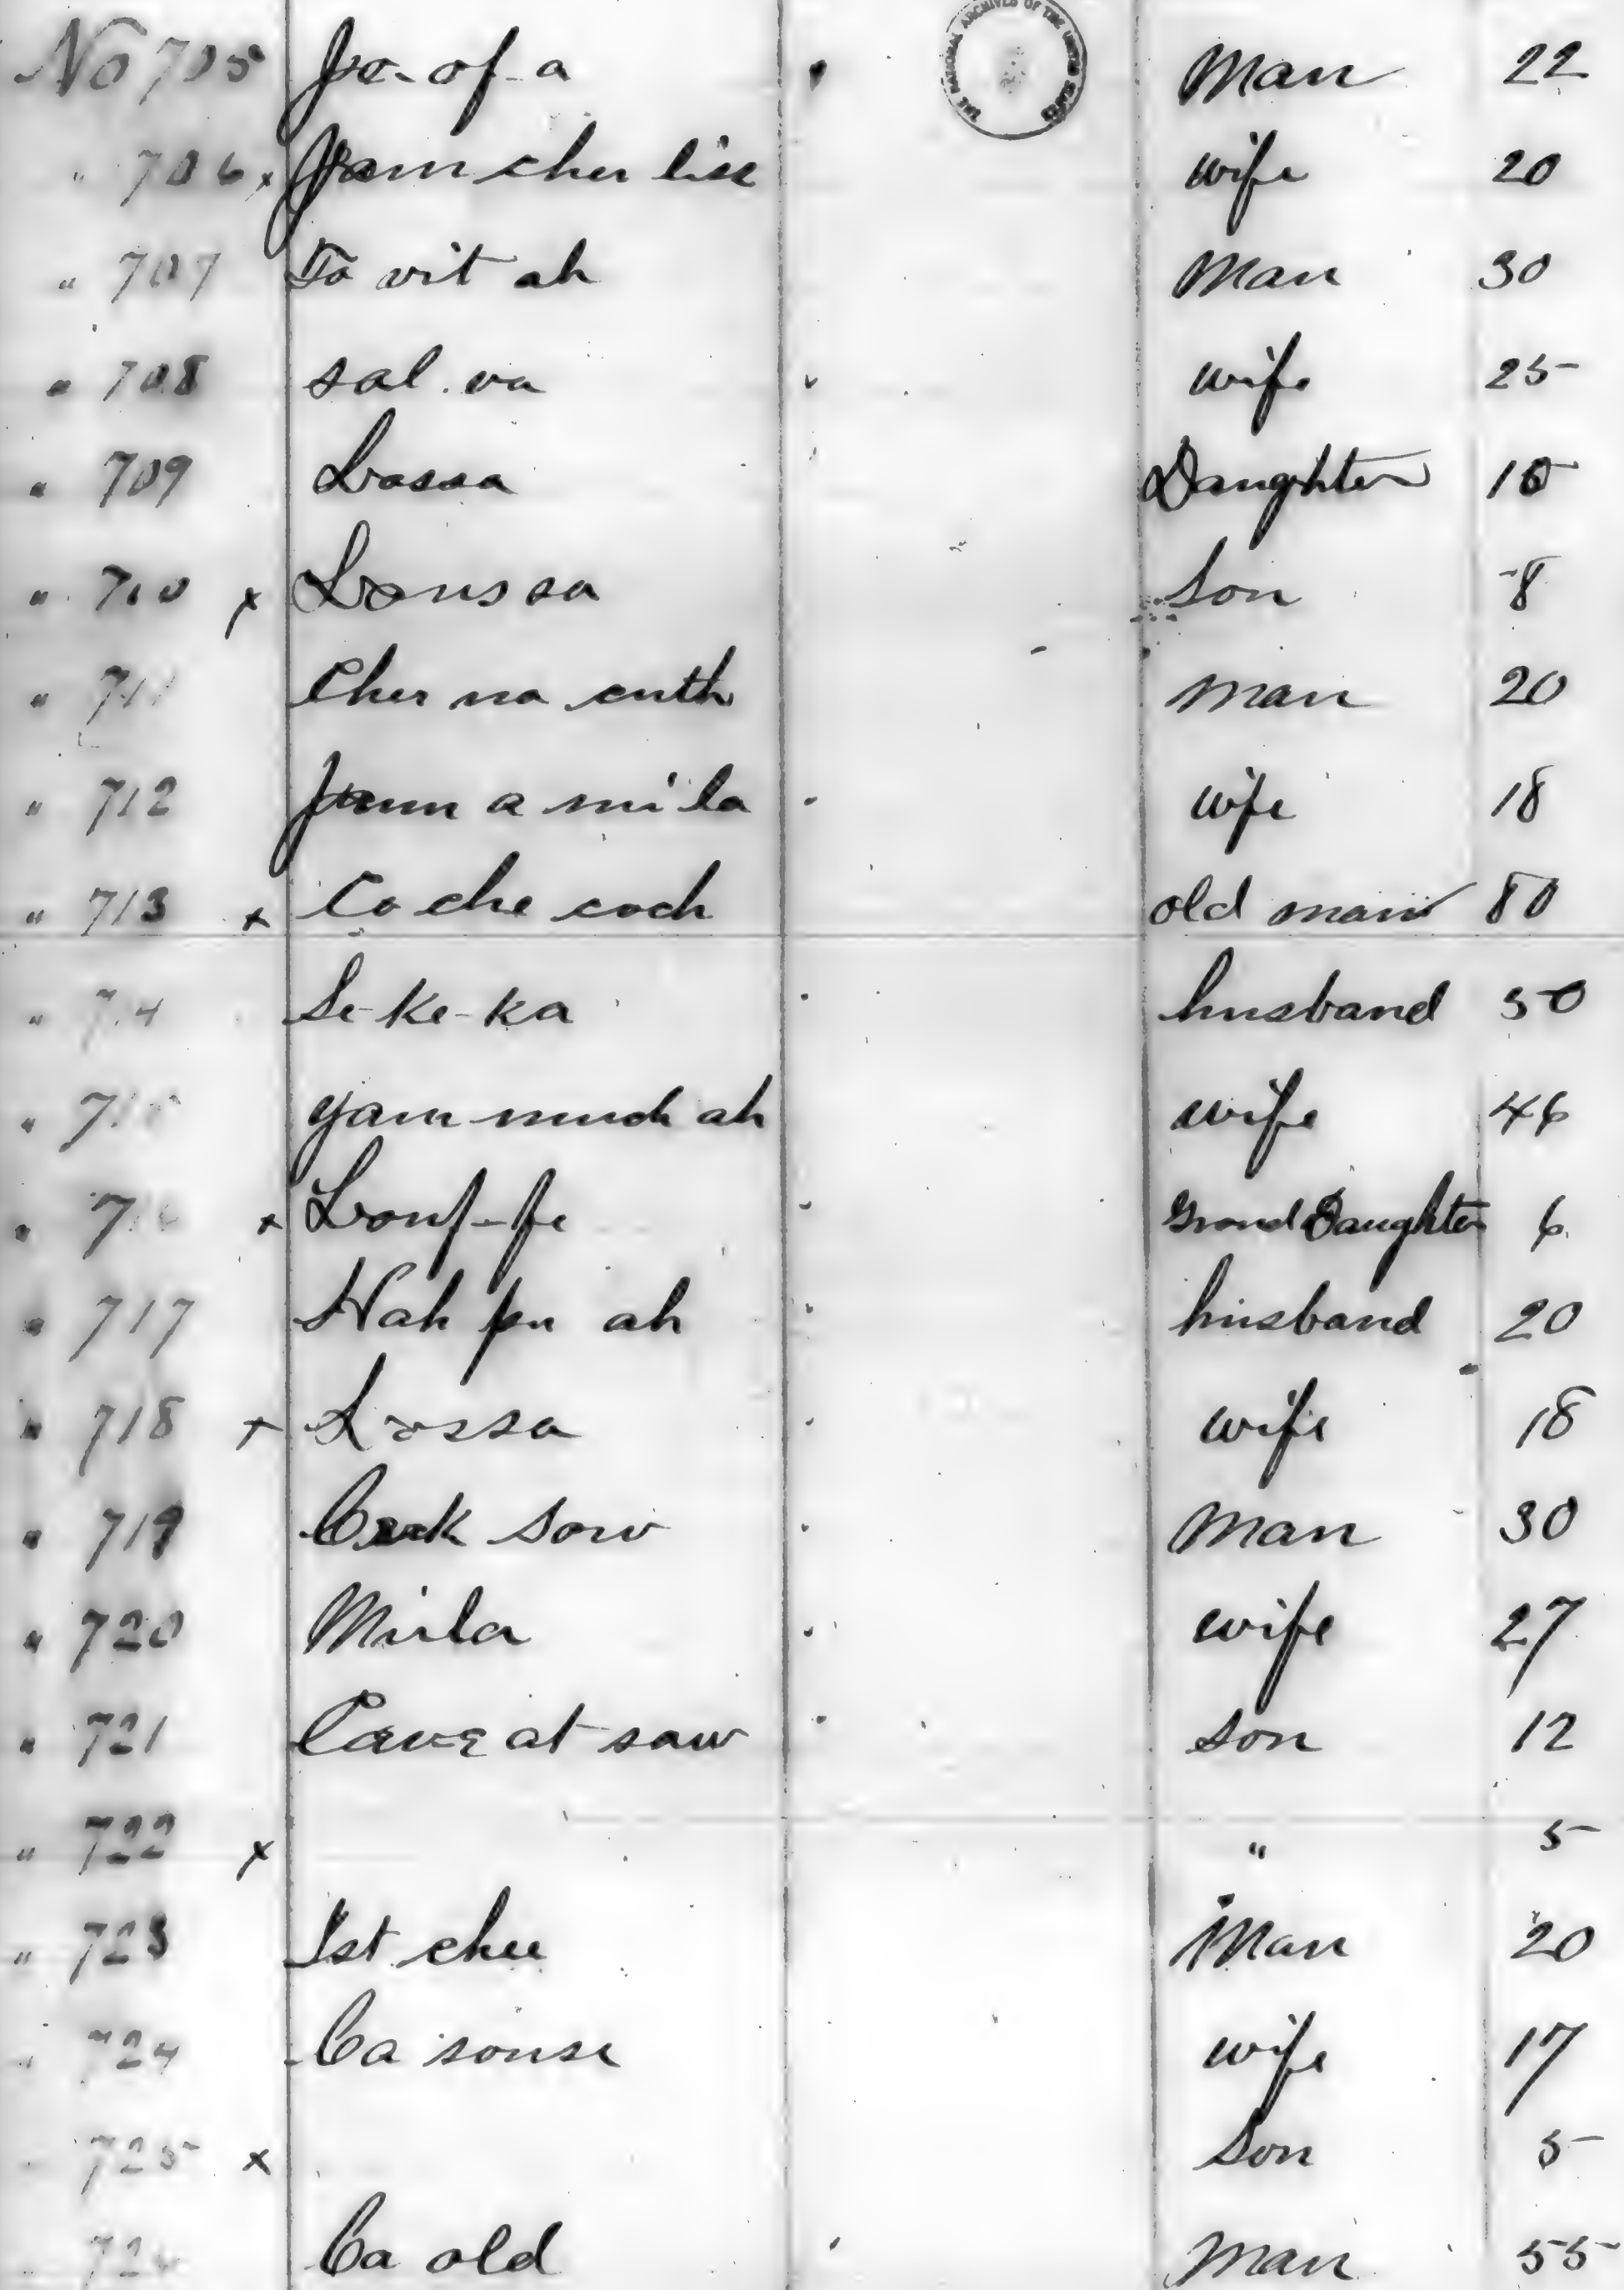 THE NATIONAL ARCHIVES OF THE UNITED STATES
No 705 Jo-of-a Man 22
" 706 x Jam cher lise wife 20
" 707 To vit ah Man 30
" 708 sal. va wife 25
" 709 Lossa Daughter 10
" 710 x Lonssa Son 8
" 711 Cher na cuth man 20
" 712 Jamm a mi la wife 18
" 713 x Co che coch old man 80
" 714 Se-ke-ka husband 50
" 715 yam much ah wife 46
" 716 x Louf-fe Grand Daughter 6
" 717 Nah pu ah husband 20
" 718 x Lossa wife 18
" 719 Cook sow Man 30
" 720 Mila wife 27
" 721 Cave at saw son 12
" 722 x " 5
" 723 Ist chee Man 20
" 724 Ca sonse wife 17
" 725 x Son 5
" 726 Ca old Man 55